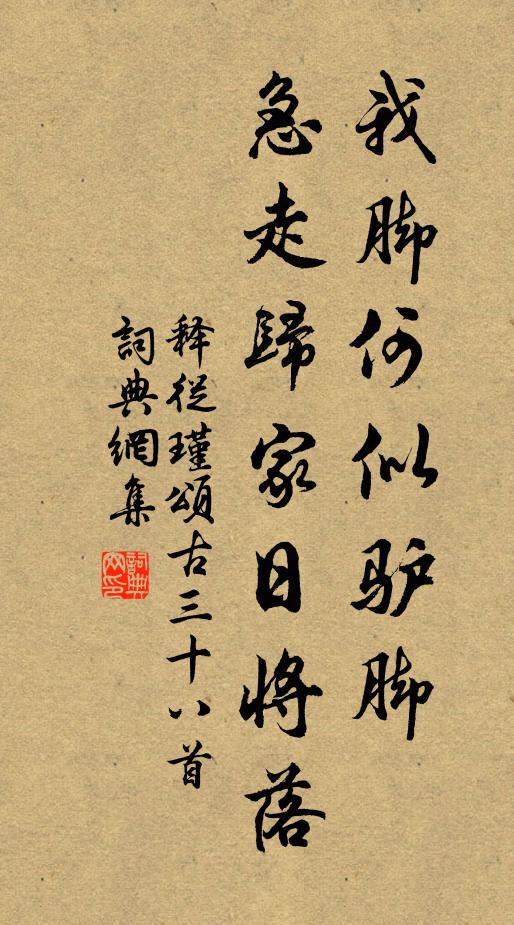 我脚何似驴脚
急走歸家日将落
释從瑾頌古三十八首
詞典網集
詞典网印